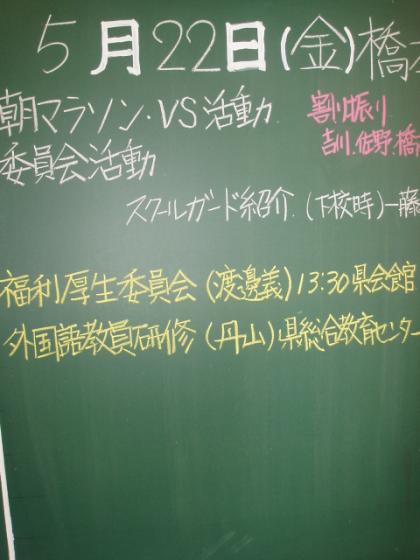 5月22日(金)橋
朝マラソン・VS活動
割り振り
吉川、佐野、橋
委員会活動
スクールガード紹介.(下校時)一藤
福利厚生委員会(渡邊義)13:30県会館
外国語教員研修(丹山)県総合教育センター